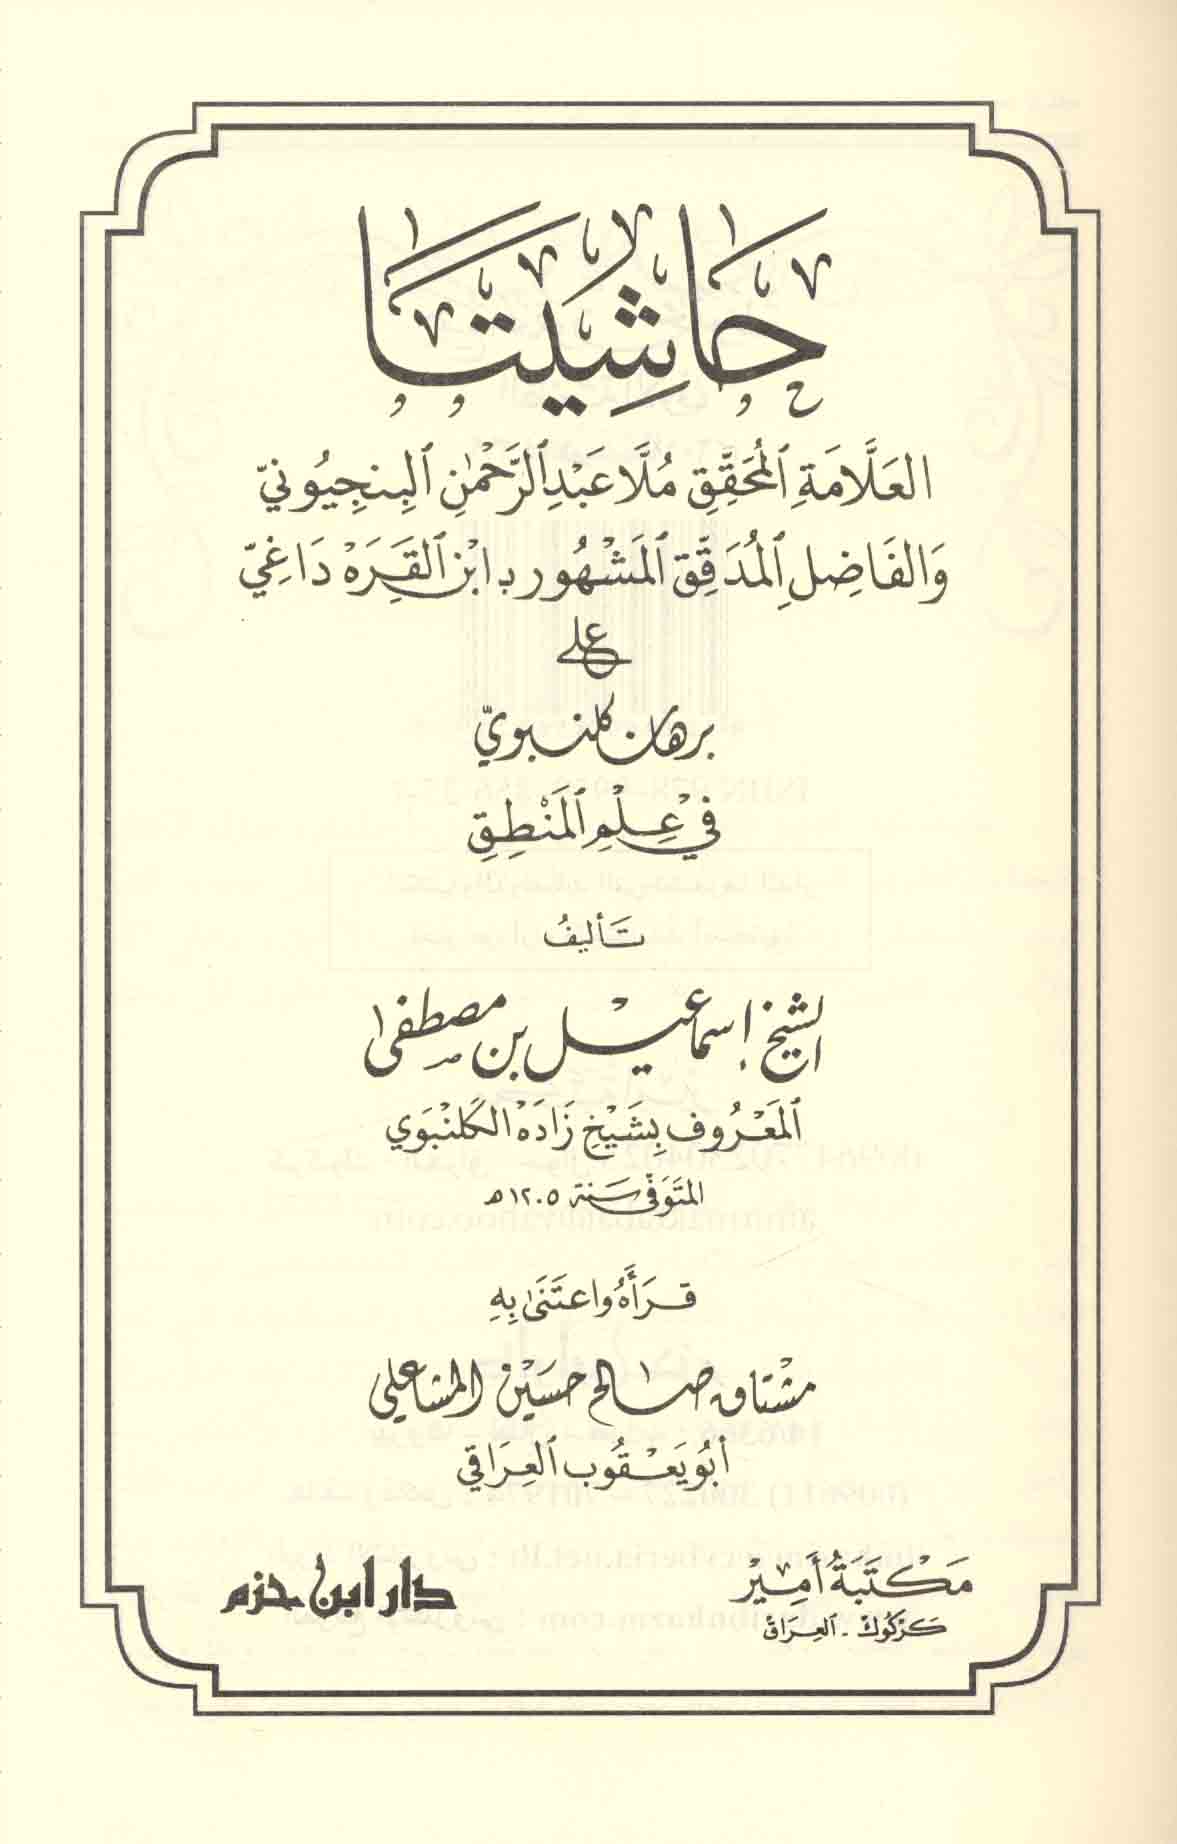 حَاشِيَتَا
العَلَّامَةِ المُحَقِّقِ مُلَّا عَبْدِ الرَّحْمٰنِ البِنجِيُونيّ
وَالفَاضِل المُدَقِّق المَشْهُور بـ ابْنِ القَرَه دَاغِيّ
على
برهان كلنبويّ
في عِلْمِ المَنْطِقِ
تَأليفُ
الشيخ إسماعيل بن مصطفى
المَعْرُوف بِشَيْخِ زَادَه الكَلَنْبَوي
المتَوَفّى سَنة ١٢٠٥ هـ
قَرَأَهُ وَاعتَنَى بِهِ
مشتاق صالح حسين المشاعلي
أبُو يَعْقُوب العِرَاقي
مَكْتَبَةُ أَمِير
كَرْكُوك - العِرَاق
دار ابن حزم